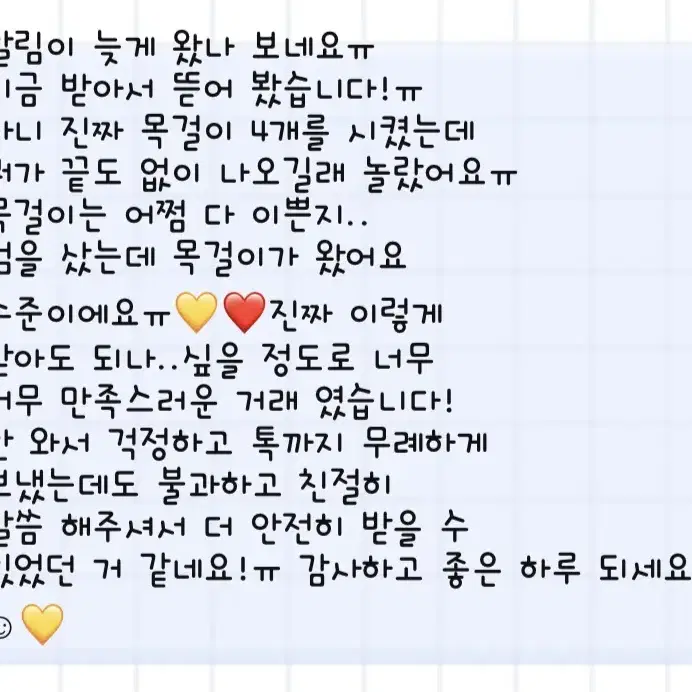 알림이 늦게 왔나 보네요ㅠ
지금 받아서 뜯어 봤습니다!ㅠ
아니 진짜 목걸이 4개를 시켰는데
끝도 없이 나오길래 놀랐어요ㅠ
목걸이는 어쩜 다 이쁜지..
샀는데 목걸이가 왔어요
수준이에요ㅠ💛❤️진짜 이렇게
받아도 되나..싶을 정도로 너무
너무 만족스러운 거래 였습니다!
안 와서 걱정하고 톡까지 무례하게
보냈는데도 불과하고 친절히
말씀 해주셔서 더 안전히 받을 수
있었던 거 같네요!ㅠ 감사하고 좋은 하루 되세요
☺💛